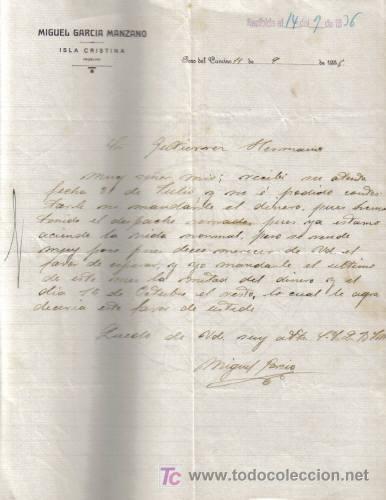 MIGUEL GARCIA MANZANO
ISLA CRISTINA
Recibida el 14 del 9 de 1936
Pozo del Camino 11 de 9 de 1936
Gutierrez Hermano
Muy señor mio; recibi su atenta
fecha 31 de Julio y no é podido contes
tarle ni mandarle el dinero, pues hemo
tenido el despacho cerrado, pues ya estamo
aciendo la vida normal, pero se vende
muy poco pues deceo merecer de Vd. el
favor de esperar, y ojo mandarle el ultimo
de este mes la mitad del dinero y el
dia 15 de Octubre el resto, lo cual le agra
deceria este favor de ustede
Quedo de Vd. suy atto S. S. Q. B. S. M.
Miguel Garcia
TC
todocoleccion.net
www.todocoleccion.net